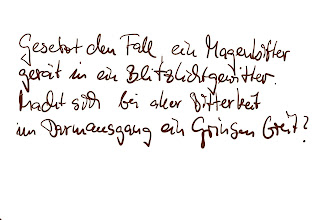 Gesetzt den Fall, ein Magenbitter
gerät in ein Blitzlichtgewitter.
Macht sich bei aller Bitterkeit
im Darmausgang ein Grinsen breit?